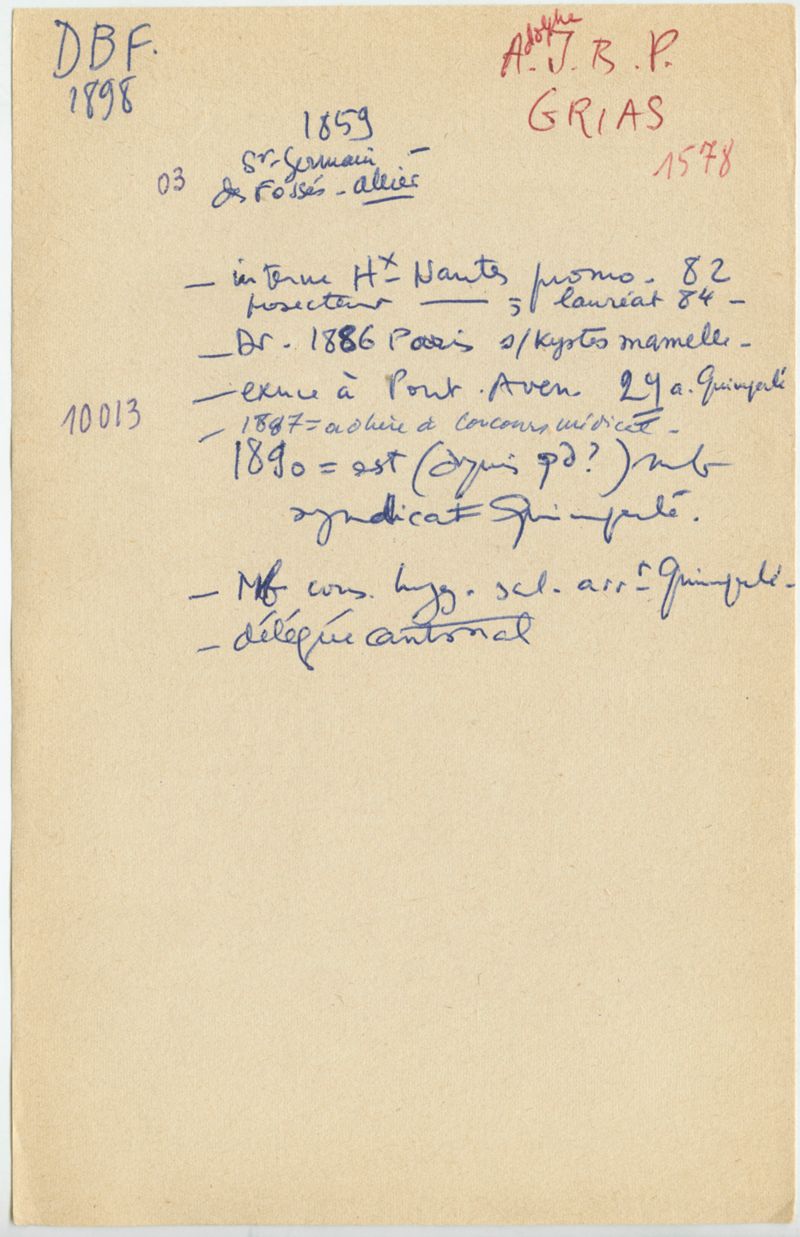 DBF.
1898
Adolphe
A. J. B. P.
GRIAS
1578
1859
St-Germain -
des Fossés - Allier
03
- interne Hx Nantes promo. 82
prosecteur — ; lauréat 84 -
- Dr. 1886 Paris s/kystes mamelle -
- exerce à Pont. Aven 29 a. Quimperlé
10013
- 1887 = adhère à Concours médical -
1890 = est (depuis qd?) mb
syndicat Quimperlé.
- Mb cons. hyg. sal. arrt Quimperlé -
- délégué cantonal